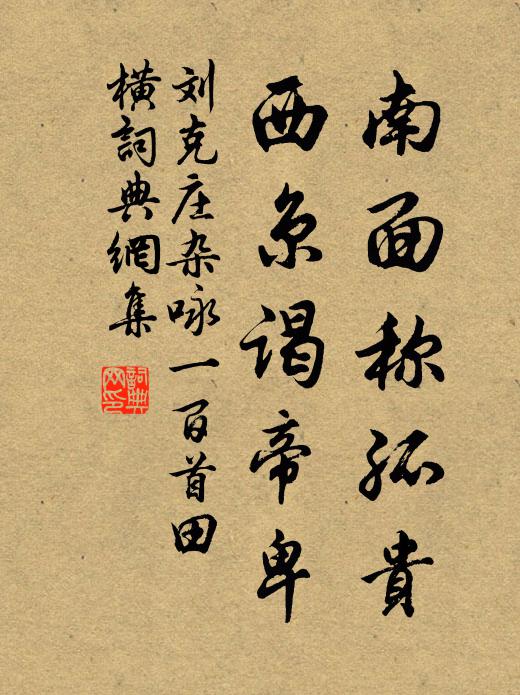 南面称孤貴
西京谒帝卑
刘克庄杂咏一百首田
横詞典網集
詞典网印